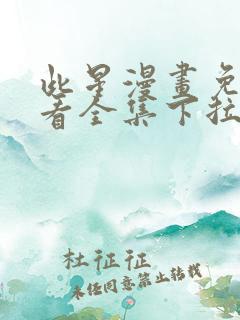 此景漫畫免
看全集下拉
杜征征
未经同意禁止转载